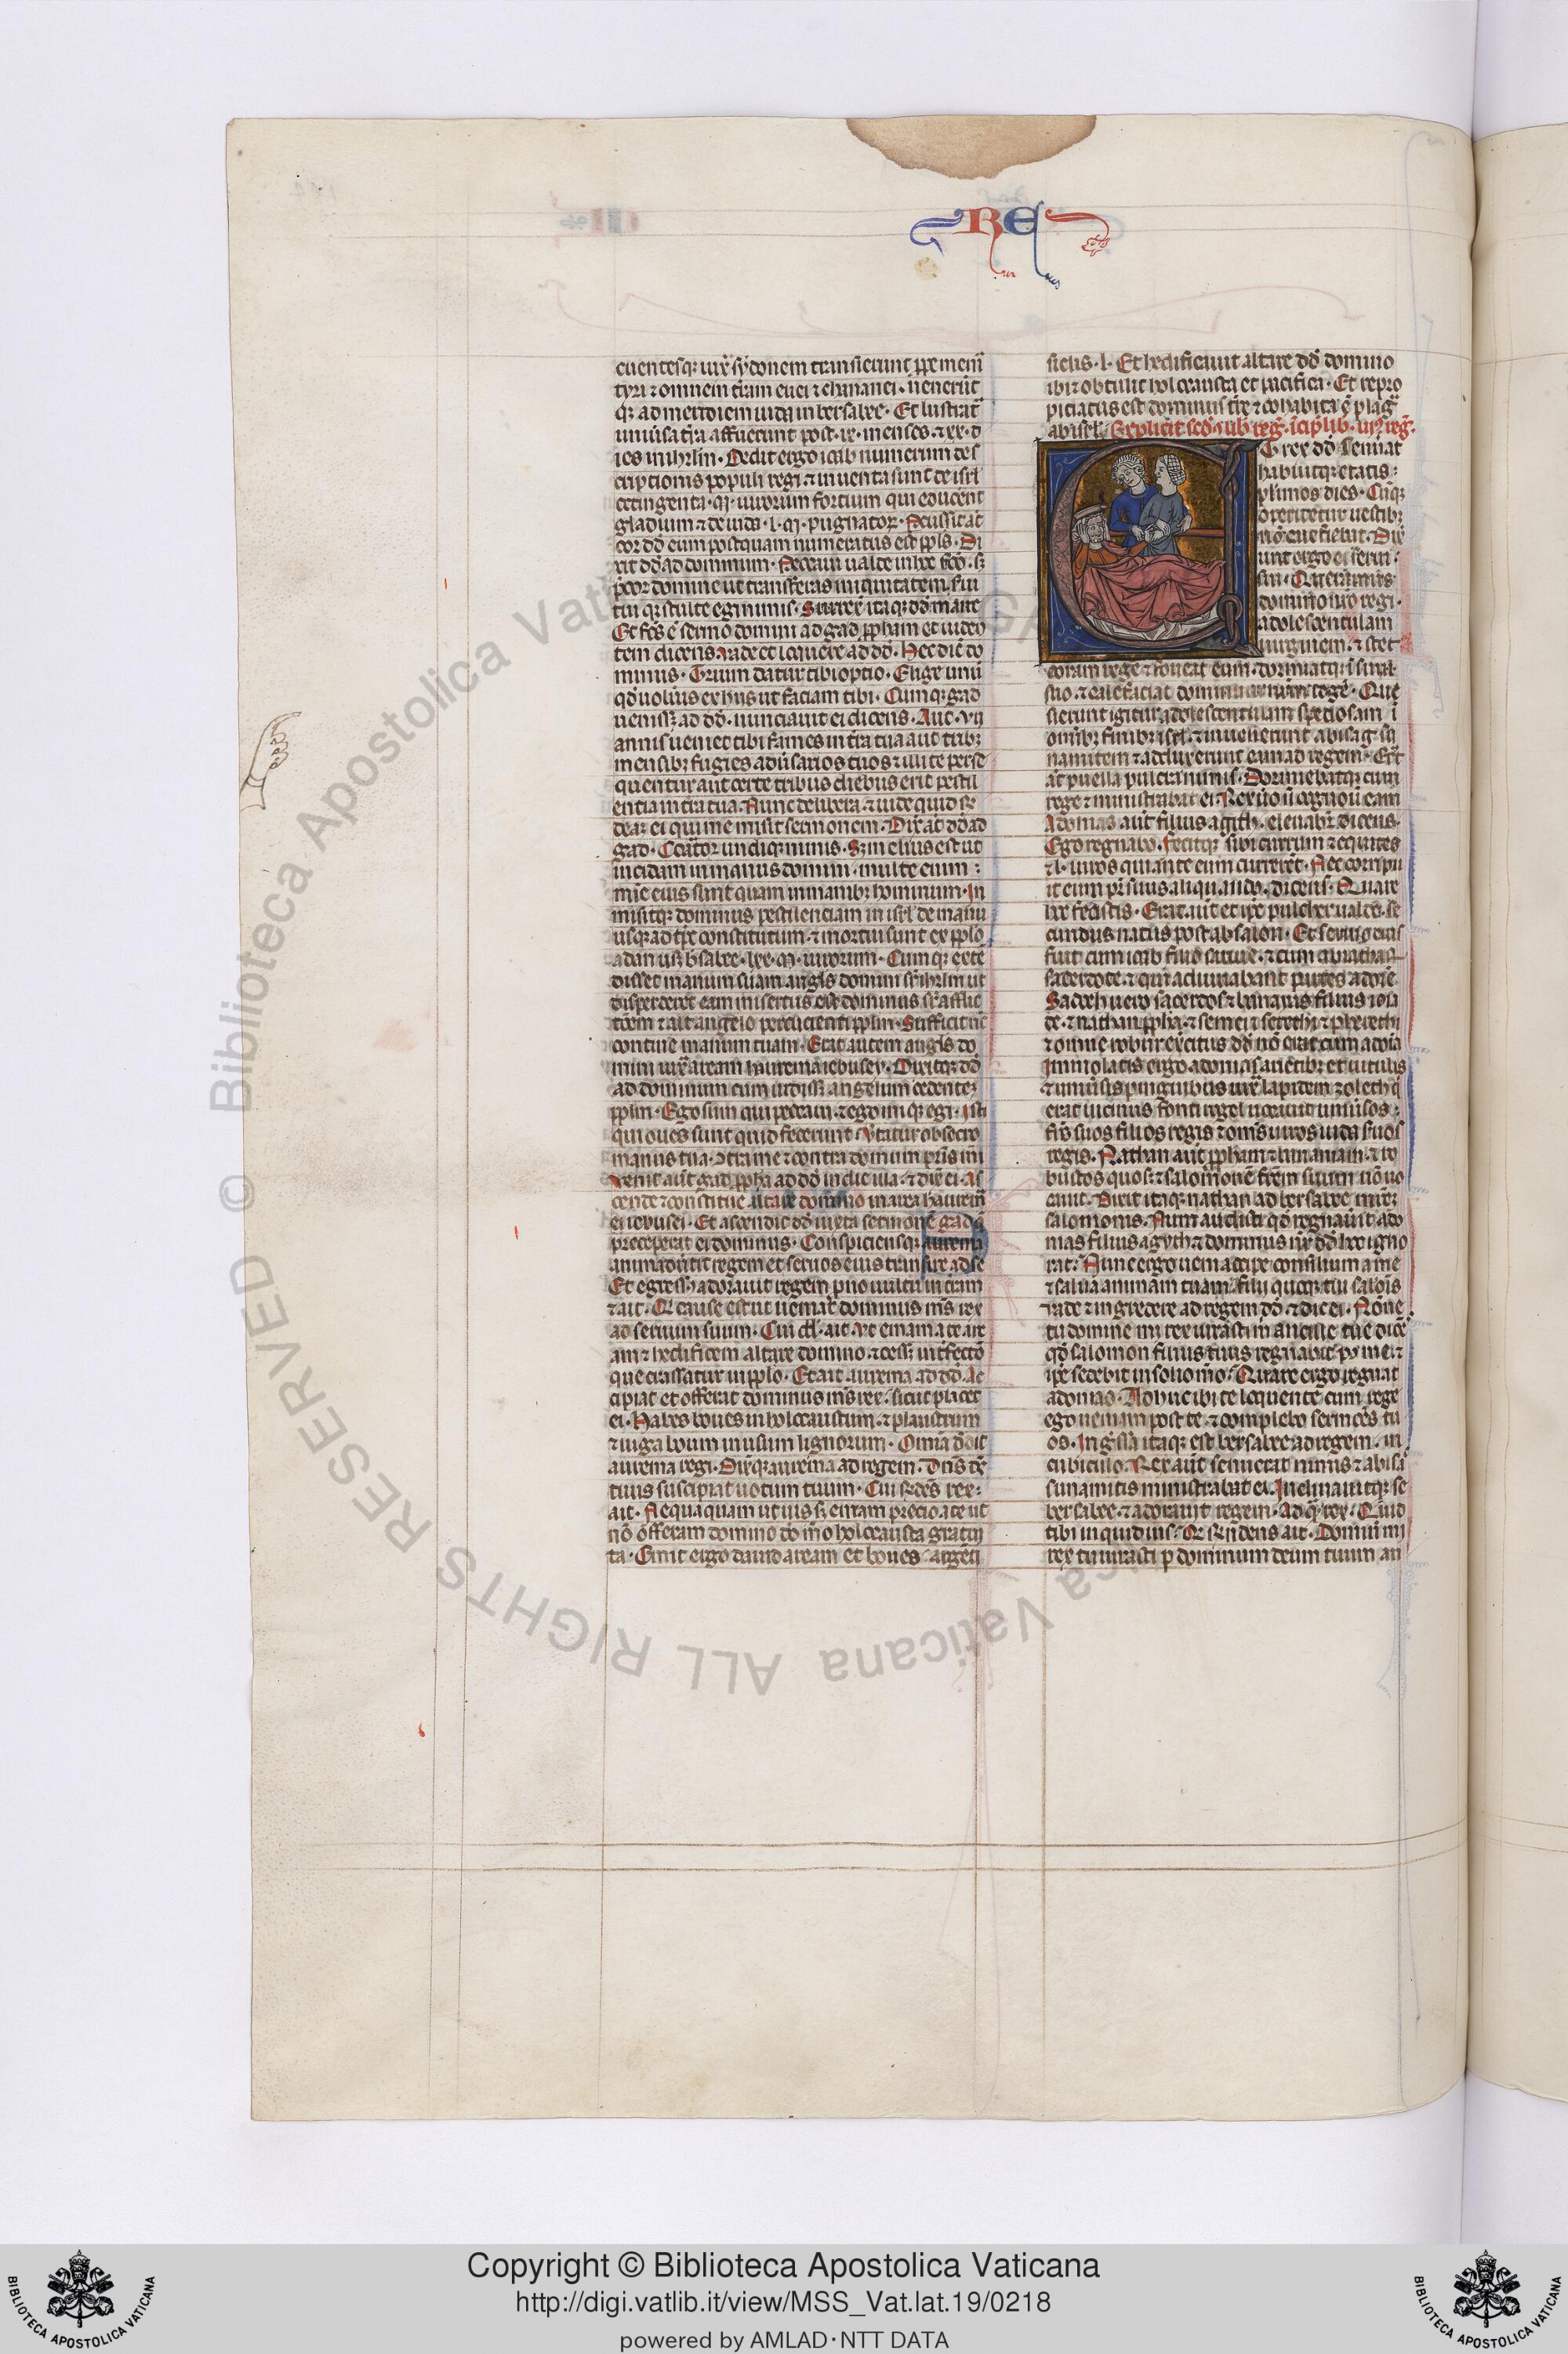 RE
euentesq; iux̄ sydonem transierunt ꝓpe meniā
tyri ⁊ omnem t̄ram euei ⁊ chananei · uenerūt
q; ad meridiem iuda in bersabee · Et lustrat̄
uniūsa t̄ra affuerunt post · ix · menses · ⁊ xx · d
ies in ihrl̄m · Dedit ergo ioab numerum des
criptionis populi regi ⁊ inuenta sunt de isrl̄
octingenta · M̄ · uirorum fortium qui educēnt
gladium ⁊ de iuda · l · M̄ · pugnatoꝝ · Pcussit aūt
cor dd̄ eum postquam numeratus est ppl̄s · Di
xit dd̄ ad dominum · Peccaui ualde in hoc fc̄o · s;
p̄cor domine ut transferas iniquitatem serui
tui q; stulte egi nimis · Surrex̄ itaq; dd̄ mane
Et fc̄s ē sermo domini ad gad ꝓpham et uiden
tem dicens · uade et loquere ad dd̄ · Hec dic̄ do
minus · Trium datur tibi optio · Elige unū
qd̄ uolūis ex hijs ut faciam tibi · Cumq; gad
uenisset ad dd̄ · nunciauit ei dicens · Aut · vij
annis ueniet tibi fames in t̄ra tua aut trib;
mensib; fugies adūsarios tuos ⁊ illi te perse
quentur aut certe tribus diebus erit pestil
entia in t̄ra tua · Nunc delibera · ⁊ uide quid r̄
deam ei qui me misit sermonem · Dix̄ aūt dd̄ ad
gad · Coartor undiq; nimis · S; melius est ut
incidam in manus domini · multe enim :
mīe eius sunt quam in manib; hominum · In
misitq; dominus pestilenciam in isrl̄ de mane
usq; ad tp̄s constitutum · ⁊ mortui sunt ex pplo
a dan usq; b̄sabee · lxx · M̄ · uirorum · Cumq; exten
disset manum suam angl̄s domini sr̄ ihrl̄m ut
disperderet eam misertus est dominus sr̄ afflic
tōem ⁊ ait angelo percucienti pplm · Sufficit nc̄
contine manum tuam · Erat autem angl̄s do
mini iux̄ aream aurema iebusey · Dixitq; dd̄
ad dominum cum uidisset angelum cedentem
pplm · Ego sum qui peccaui · ⁊ ego iniq; egi · Isti
qui oues sunt quid fecerunt · Vertatur obsecro
manus tua ꝯtra me ⁊ contra domum pr̄is mī
Venit aūt gad ꝓpha ad dd̄ in die illa · ⁊ dix̄ ei · As
cende ⁊ constitue altare domino in area haurem̄
ei iebusei · Et ascendit dd̄ iuxta sermonē gad q̄
preceperat ei dominus · Conspiciensq; aurema
animaduertit regem et seruos eius transire ad se
Et egressus adorauit regem p̄no uultu in t̄ram
⁊ ait · Qr̄ cause est ut ueniat dominus mꝰs rex
ad seruum suum · Cui dd̄ · ait · Vt emam a te are
am ⁊ hedificem altare domino · ⁊ cesset int̄fectō
que crassatur in pplo · Et ait aurema ad dd̄ · Ac
cipiat et offerat dominus mꝰs rex sicut placet
ei · Habes boues in holocaustum · ⁊ plaustrum
⁊ iuga boum in usum lignorum · Omia dedit
aurema regi · Dixitq; aurema ad regem · Dn̄s dꝰ
tuus suscipiat uotum tuum · Cui r̄ndens rex :
ait · Nequaquam ut uis s; emam precio a te ut
nō offeram domino do mo holocausta gratui
ta · Emit ergo dauid aream et boues · argenti
siclis · l · Et hedificauit altare dd̄ domino
ibi ⁊ obtulit holocausta et pacifica · Et repro
piciatus est dominus t̄re ⁊ cohabita ē plaga
ab isrl̄ · Explicit scds̄ lib̄ reg̅ · incip̄ lib̄ · iijꝰ reg̅ ·
ET rex dd̄ senuat
habuitq; etatis :
plimos dies · Cūq;
operiretur uestib;
nō calefiebat · Dix̄
unt ergo ei serui :
sui · Queramus
domino nr̄o regi ·
adolescentulam
uirginem · ⁊ stet
coram rege ⁊ foueat eum · dormiatq; ī sinu
suo · ⁊ calefaciat dominum nr̄m regē · Que
sierunt igitur adolescentulam speciosam ī
omib; finib; isrl̄ · ⁊ inuenerunt abisag su
namitem ⁊ adduxerunt eam ad regem · Erat
aūt puella pulcra nimis · Dormiebatq; cum
rege ⁊ ministrabat ei · Rex ūo n̄ cognouit eam
Adonias aūt filius agith · eleuabat̄ dicens ·
Ego regnabo · Fecitq; sibi currum ⁊ equites
⁊ l · uiros qui ante eum currerēt · Nec corripu
it eum pr̄ suus aliquando · dicens · Quare
hoc fecistis · Erat aūt et ipse pulcher ualde · se
cundus natus post absalon · Et sermo eius
fuit cum ioab filio saruie · ⁊ cum abiathar
sacerdote · ⁊ qui adiuuabant partes adonie ·
Sadoch uero sacerdos ⁊ banayas filius ioia
de · ⁊ nathan ꝓpha · ⁊ semei ⁊ serethi · ⁊ pherethi
⁊ omne robur ex̄citus dd̄ nō erat cum adonia
Immolatis ergo adonias arietib; et uitulis
⁊ uniūsis pinguibus iux̄ lapidem zoleth q̄
erat uicinus fonti rogel uocauit uniūsos :
fr̄s suos filios regis ⁊ om̄s uiros iuda suos
regis · Nathan aūt ꝓpham ⁊ banaiam · ⁊ ro
bustos quosq; ⁊ salomonē frēm suum nō uo
cauit · Dixit itaq; nathan ad bersabee m̄rem
salomonis · Num audisti qd̄ regnauit ado
nias filius agyth ⁊ dominus nr̄ dd̄ hoc igno
rat · Nunc ergo ueni accipe consilium a me
⁊ salua animam tuam · filijq; tui salois
Vade ⁊ ingredere ad regem dd̄ · ⁊ dic ei · Nōne
tu domine mi rex iurasti m̄ ancille tue dicē
qd̄ salomon filius tuus regnabit p̄ me ⁊
ipse sedebit in solio mō · Quare ergo regnat
adonias · Adhuc ibi te loquente cum rege
ego ueniam post te · ⁊ complebo sermōes tu
os · Ingressa itaq; est bersabee ad regem · in
cubiculo · Rex aūt senuerat nimis · ⁊ abisa
sunamitis ministrabat ei · Inclinauitq; se
bersabee · ⁊ adorauit regem · Ad q̄ rex · Quid
tibi inquid uis · Qr̄ r̄ndens ait · Domine mi
rex tu iurasti p dominum deum tuum an
© Biblioteca Apostolica Vaticana ALL RIGHTS RESERVED
Copyright © Biblioteca Apostolica Vaticana
http://digi.vatlib.it/view/MSS_Vat.lat.19/0218
powered by AMLAD·NTT DATA
BIBLIOTECA APOSTOLICA VATICANA
BIBLIOTECA APOSTOLICA VATICANA